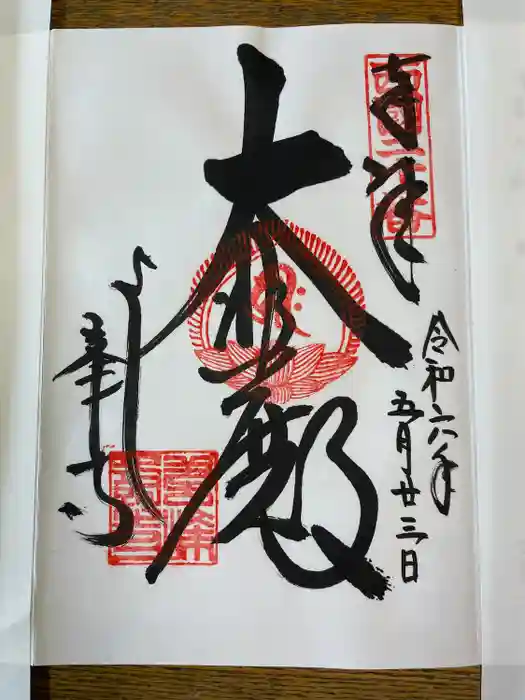 奉拝
令和六年
五月廿三日
大悲殿
よし
峯寺